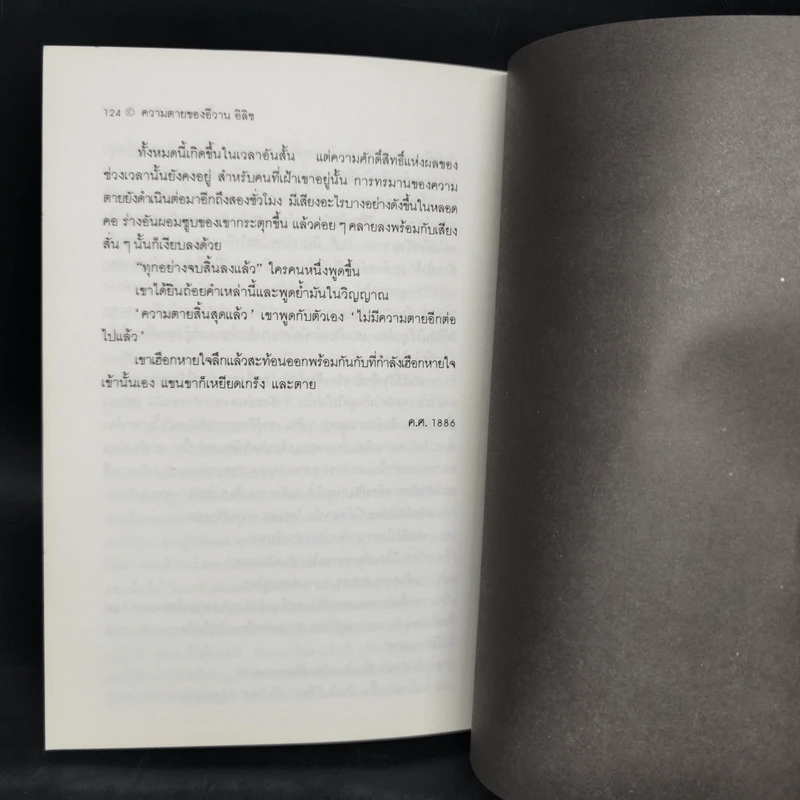 124 © ความตายของอีวาน อิลิช
ทั้งหมดนี้เกิดขึ้นในเวลาอันสั้น แต่ความศักดิ์สิทธิ์แห่งผลของ
ช่วงเวลานั้นยังคงอยู่ สำหรับคนที่เฝ้าเขาอยู่นั้น การทรมานของความ
ตายยังดำเนินต่อมาอีกถึงสองชั่วโมง มีเสียงอะไรบางอย่างดังขึ้นในหลอด
คอ ร่างอันผอมซูบของเขากระตุกขึ้น แล้วค่อย ๆ คลายลงพร้อมกับเสียง
สั่น ๆ นั้นก็เงียบลงด้วย
“ทุกอย่างจบสิ้นลงแล้ว” ใครคนหนึ่งพูดขึ้น
เขาได้ยินถ้อยคำเหล่านี้และพูดย้ำมันในวิญญาณ
‘ความตายสิ้นสุดแล้ว’ เขาพูดกับตัวเอง ‘ไม่มีความตายอีกต่อ
ไปแล้ว’
เขาเฮือกหายใจลึกแล้วสะท้อนออกพร้อมกันกับที่กำลังเฮือกหายใจ
เข้านั้นเอง แขนขาก็เหยียดเกร็ง และตาย
ค.ศ. 1886